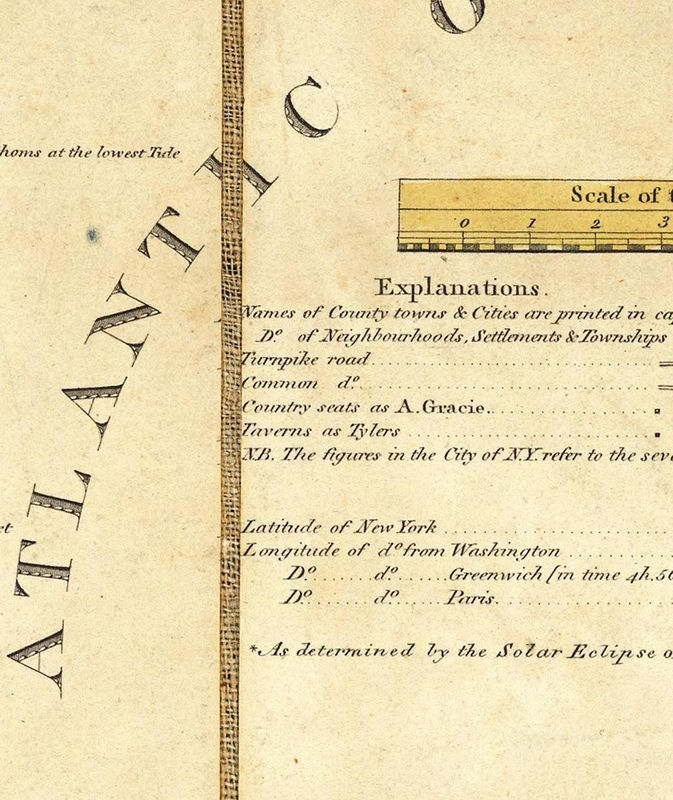 ATLANTIC O
homs at the lowest Tide
Scale of
0 1 2 3
Explanations.
Names of County towns & Cities are printed in
Dº of Neighbourhoods, Settlements & Townships
Turnpike road
Common dº
Country seats as A. Gracie.
Taverns as Tylers
N.B. The figures in the City of N.Y. refer to the
Latitude of New York
Longitude of dº from Washington
Dº ...... dº ...... Greenwich (in time 4h.5
Dº ...... dº ...... Paris.
*As determined by the Solar Eclipse